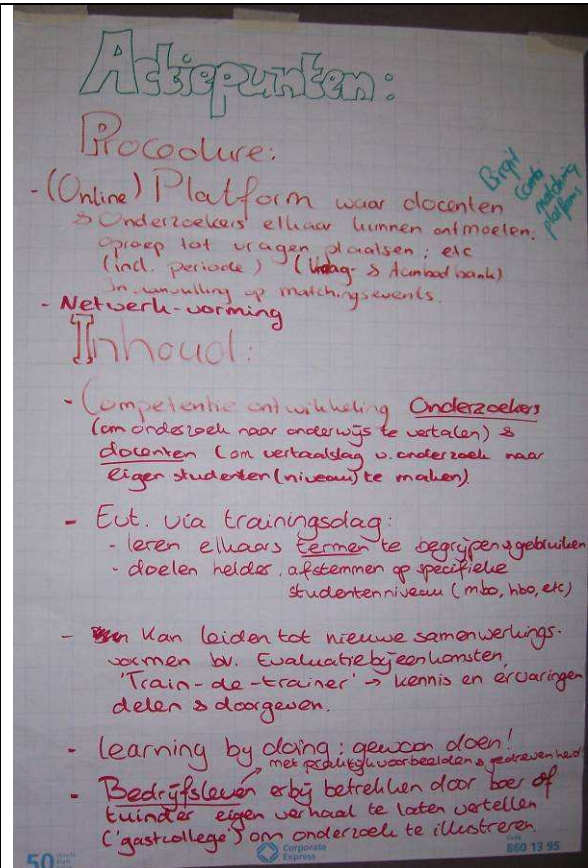 Actiepunten:
Procedure:
- (Online) Platform waar docenten
& Onderzoekers elkaar kunnen ontmoeten.
oproep tot vragen plaatsen; etc
(incl. periode) (Vraag- & Aanbod bank)
In aanvulling op matchingsevents.
- Netwerk-vorming
Brgit
Combi
matching
platform
Inhoud:
- Competentie ontwikkeling Onderzoekers
(om onderzoek naar onderwijs te vertalen) &
docenten (om vertaalslag v. onderzoek naar
eigen studenten (niveau) te maken).
- Evt. via trainingsdag:
- leren elkaars termen te begrijpen & gebruiken
- doelen helder. afstemmen op specifieke
studentenniveau (mbo, hbo, etc)
- Kan leiden tot nieuwe samenwerkings-
vormen bv. Evaluatiebijeenkomsten,
'Train-de-trainer' → kennis en ervaringen
delen & doorgeven.
- learning by doing: gewoon doen!
met praktijkvoorbeelden & gedrevenheid
- Bedrijfsleven erbij betrekken door boer of
tuinder eigen verhaal te laten vertellen
('gastcollege') om onderzoek te illustreren.
50
Corporate
Express
860 13 95